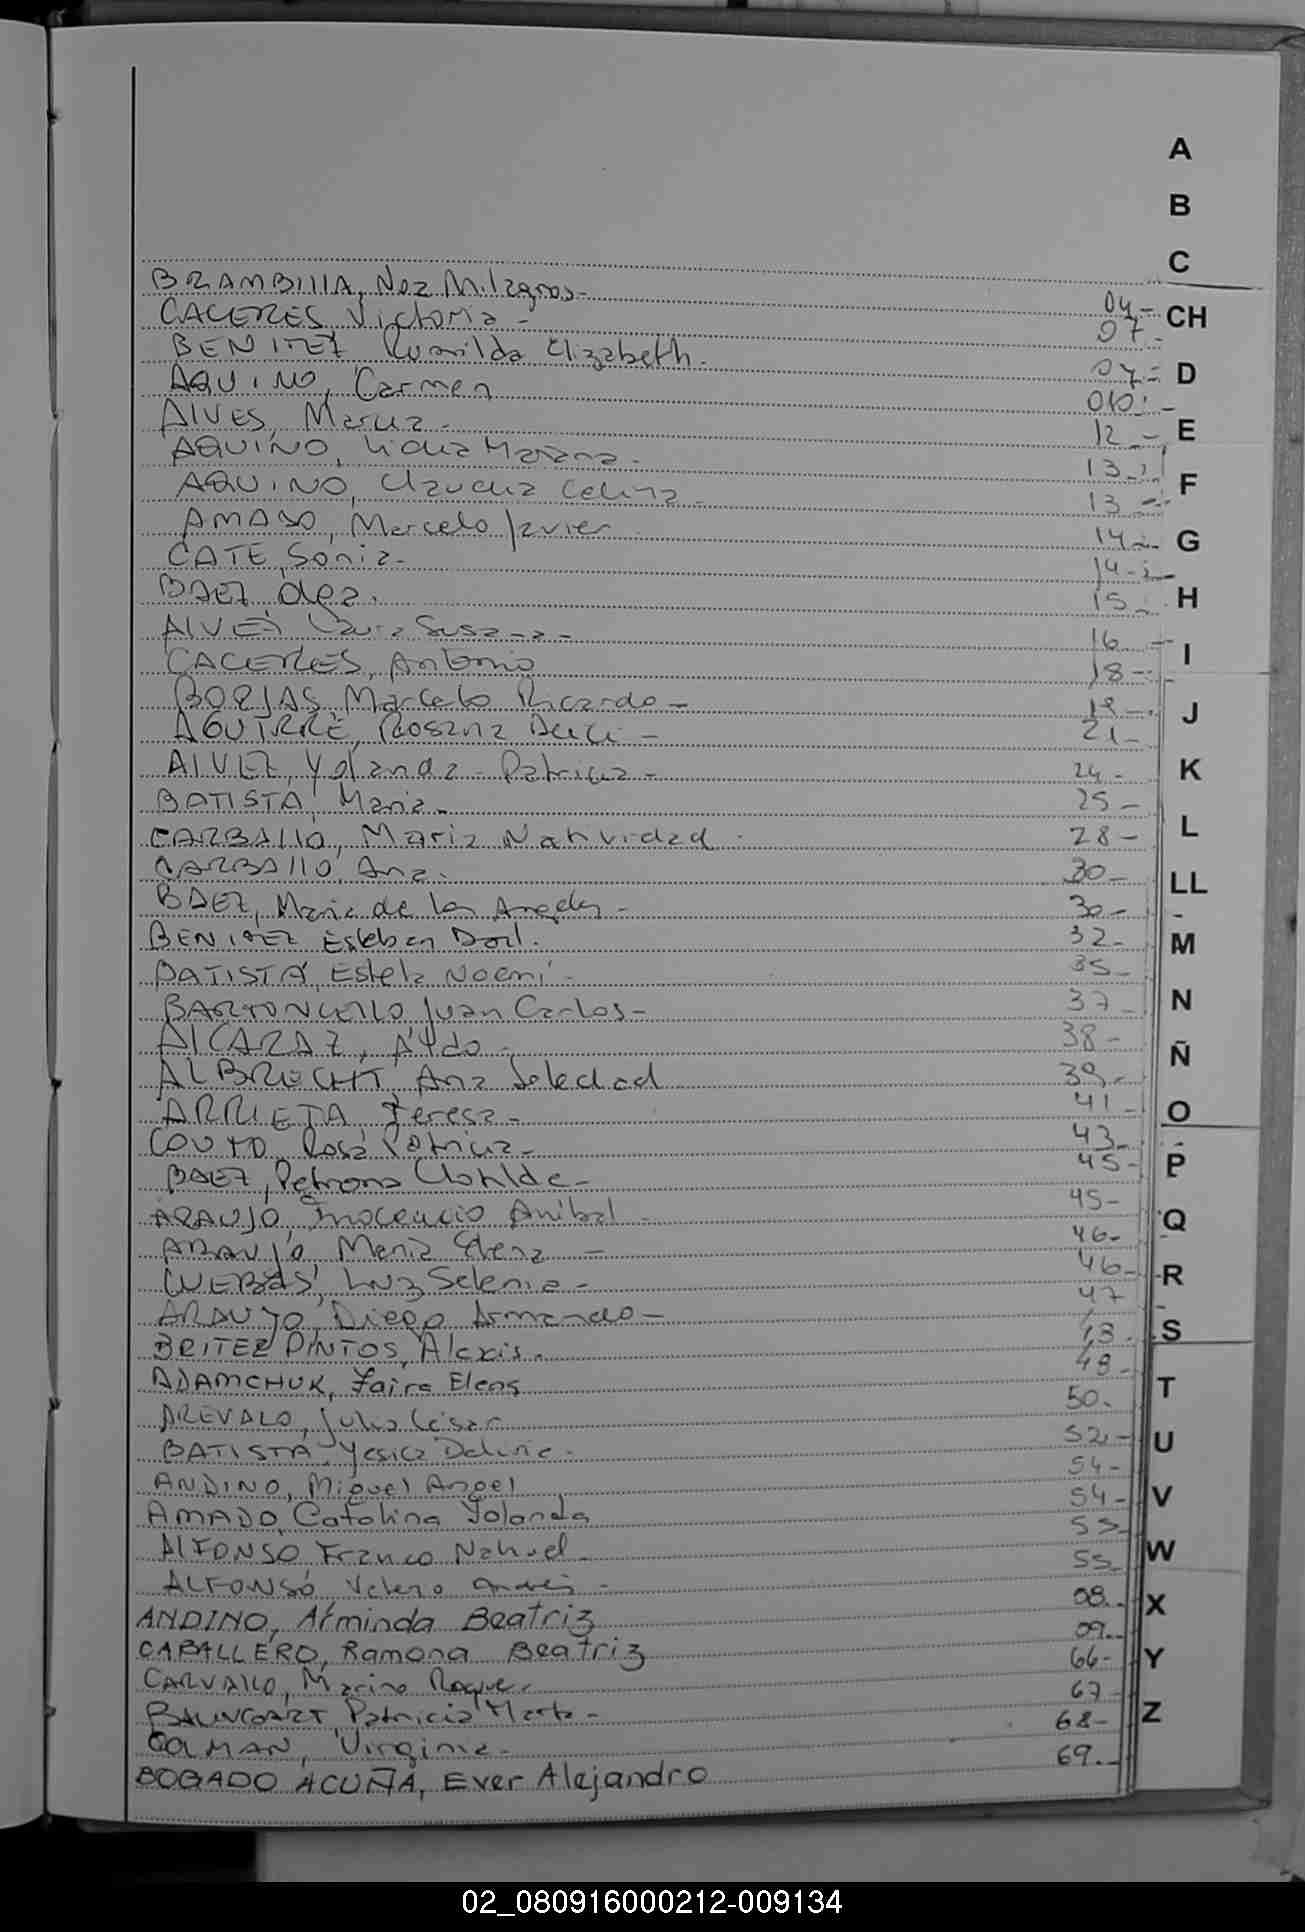 BRAMBIllA, Noz Milagros- 04-
CACERES Victoria - 07-
BENITEZ Romilda Elizabeth. 07-
AQUINO, Carmen 010-
AlVES, Maria - 12-
AQUINO, Lidia Mariana. 13-
AQUINO, Claudia Celina 13-
AMADO, Marcelo Javier 14-
CATE, Sonia- 14-
BAEZ 15-
AlVEZ Laura Susana- 16-
CACERES, Antonio 18-
BORJAS, Marcelo Ricardo- 19-
AGUIRRE, Rosana 21-
AlVEZ, Yolanda - Patricia- 24-
BATISTA, Maria- 25-
CARBAllO, Maria Natividad 28-
CARBAllO, Ana. 30-
BAEZ, Maria de los Angeles - 30-
BENITEZ Esteban 32-
BATISTA, Estela Noemi - 35-
Juan Carlos- 37-
AlCARAZ, 38-
ALBRECHT Ana Soledad 39-
ARRIETA Teresa- 41-
COUTO, Rosa Patricia- 43-
BAEZ, Petrona Clotilde- 45-
ARAUJO, Inocencio Anibal - 45-
ARAUJO, Maria Elena - 46-
CUEBAS, Luz Selenia- 46-
ARAUJO, Diego Armando- 47
BRITEZ PINTOS, Alexis. 48-
ADAMCHUK, Yaira Elena 48-
AREVALO, Julio César 50.
BATISTA Yesica 52-
ANDINO, Miguel Angel 54-
AMADO, Catalina Yolanda 54-
AlFONSO, Franco Nahuel 55-
ALFONSO, 55-
ANDINO, Arminda Beatriz 08.
CABALLERO, Ramona Beatriz 09.
CARVAllO, Marino Roque. 66-
BAUNGART Patricia Marta- 67-
COLMAN, Virginia- 68-
BOGADO ACUÑA, Ever Alejandro 69.
A
B
C
CH
D
E
F
G
H
I
J
K
L
LL
M
N
Ñ
O
P
Q
R
S
T
U
V
W
X
Y
Z
02_080916000212-009134